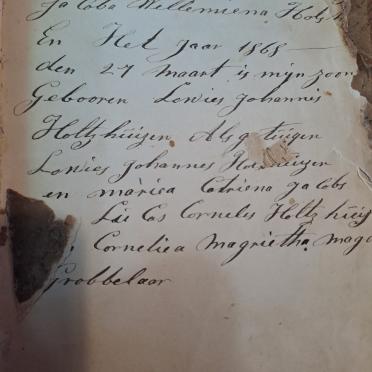 Jacoba Willemiena Holts
En Het Jaar 1868
den 27 maart is mijn zoon
Gebooren Lowies Johannis
Holtzhuizen Als getuigen
Lowies Johannes
en mariea Catriena Jacoba
Cornelis Holtzhuis
Corneliea magrietha mag
Grobbelaar